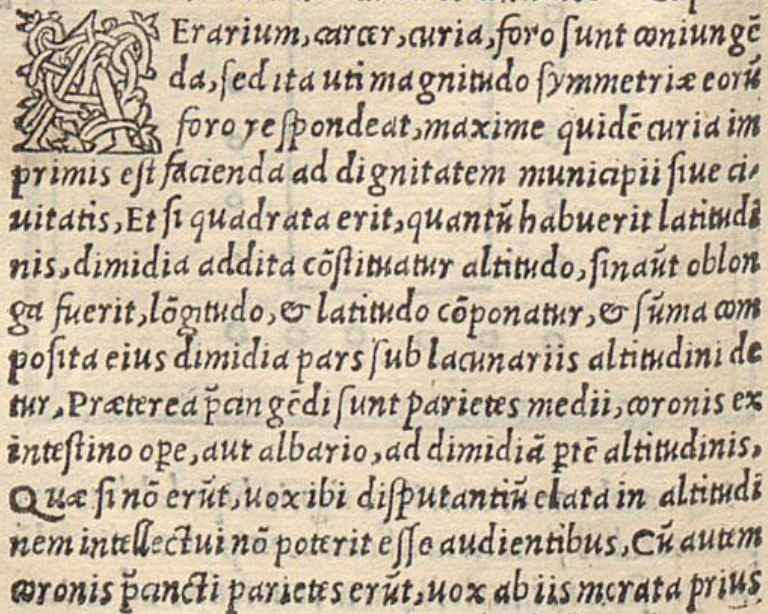 AErarium, carcer, curia, foro sunt coniungẽ
da, sed ita uti magnitudo symmetriæ eorũ
foro respondeat, maxime quidẽ curia im
primis est facienda ad dignitatem municipii siue ci-
uitatis, Et si quadrata erit, quantũ habuerit latitudi
nis, dimidia addita cõstituatur altitudo, sinaũt oblon
ga fuerit, lõgitudo, & latitudo cõponatur, & sũma com
posita eius dimidia pars sub lacunariis altitudini de
tur, Præterea p̃cingẽdi sunt parietes medii, coronis ex
intestino oꝑe, aut albario, ad dimidiã ꝑtẽ altitudinis,
Quæ si nõ erũt, uox ibi disputantiũ elata in altitudi
nem intellectui nõ poterit esse audientibus, Cũ autem
coronis p̃cincti parietes erũt, uox ab iis morata prius